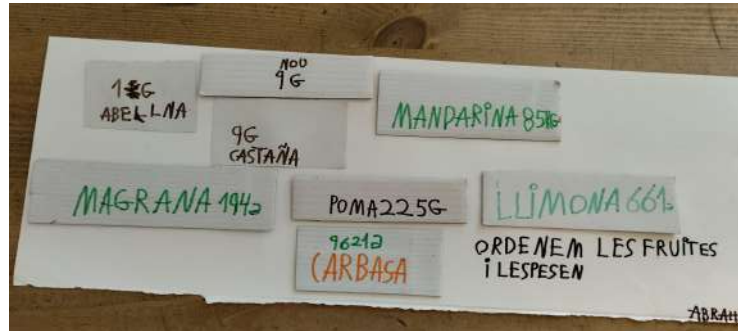 NOU
9G
1G
ABELLNA
MANDARINA 85G
9G
CASTAÑA
MAGRANA 194g
POMA 225G
LLIMONA 661g
9621g
CARBASA
ORDENEM LES FRUITES
i LESPESEN
ABRAH